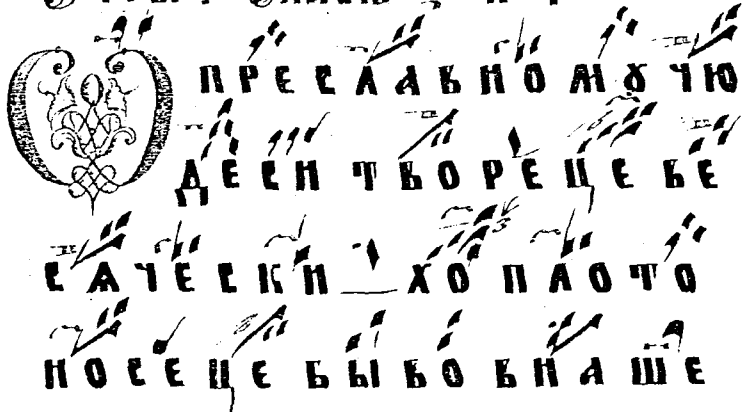 О ПРЕСЛАВНОМꙊ ЧЮ
ДЕСИ ТВОРЕЦЕ ВЕ
СѦЧЕСКИ ХО ПЛОТО
НОСЕЦЕ БЫВО ВНАШЕ